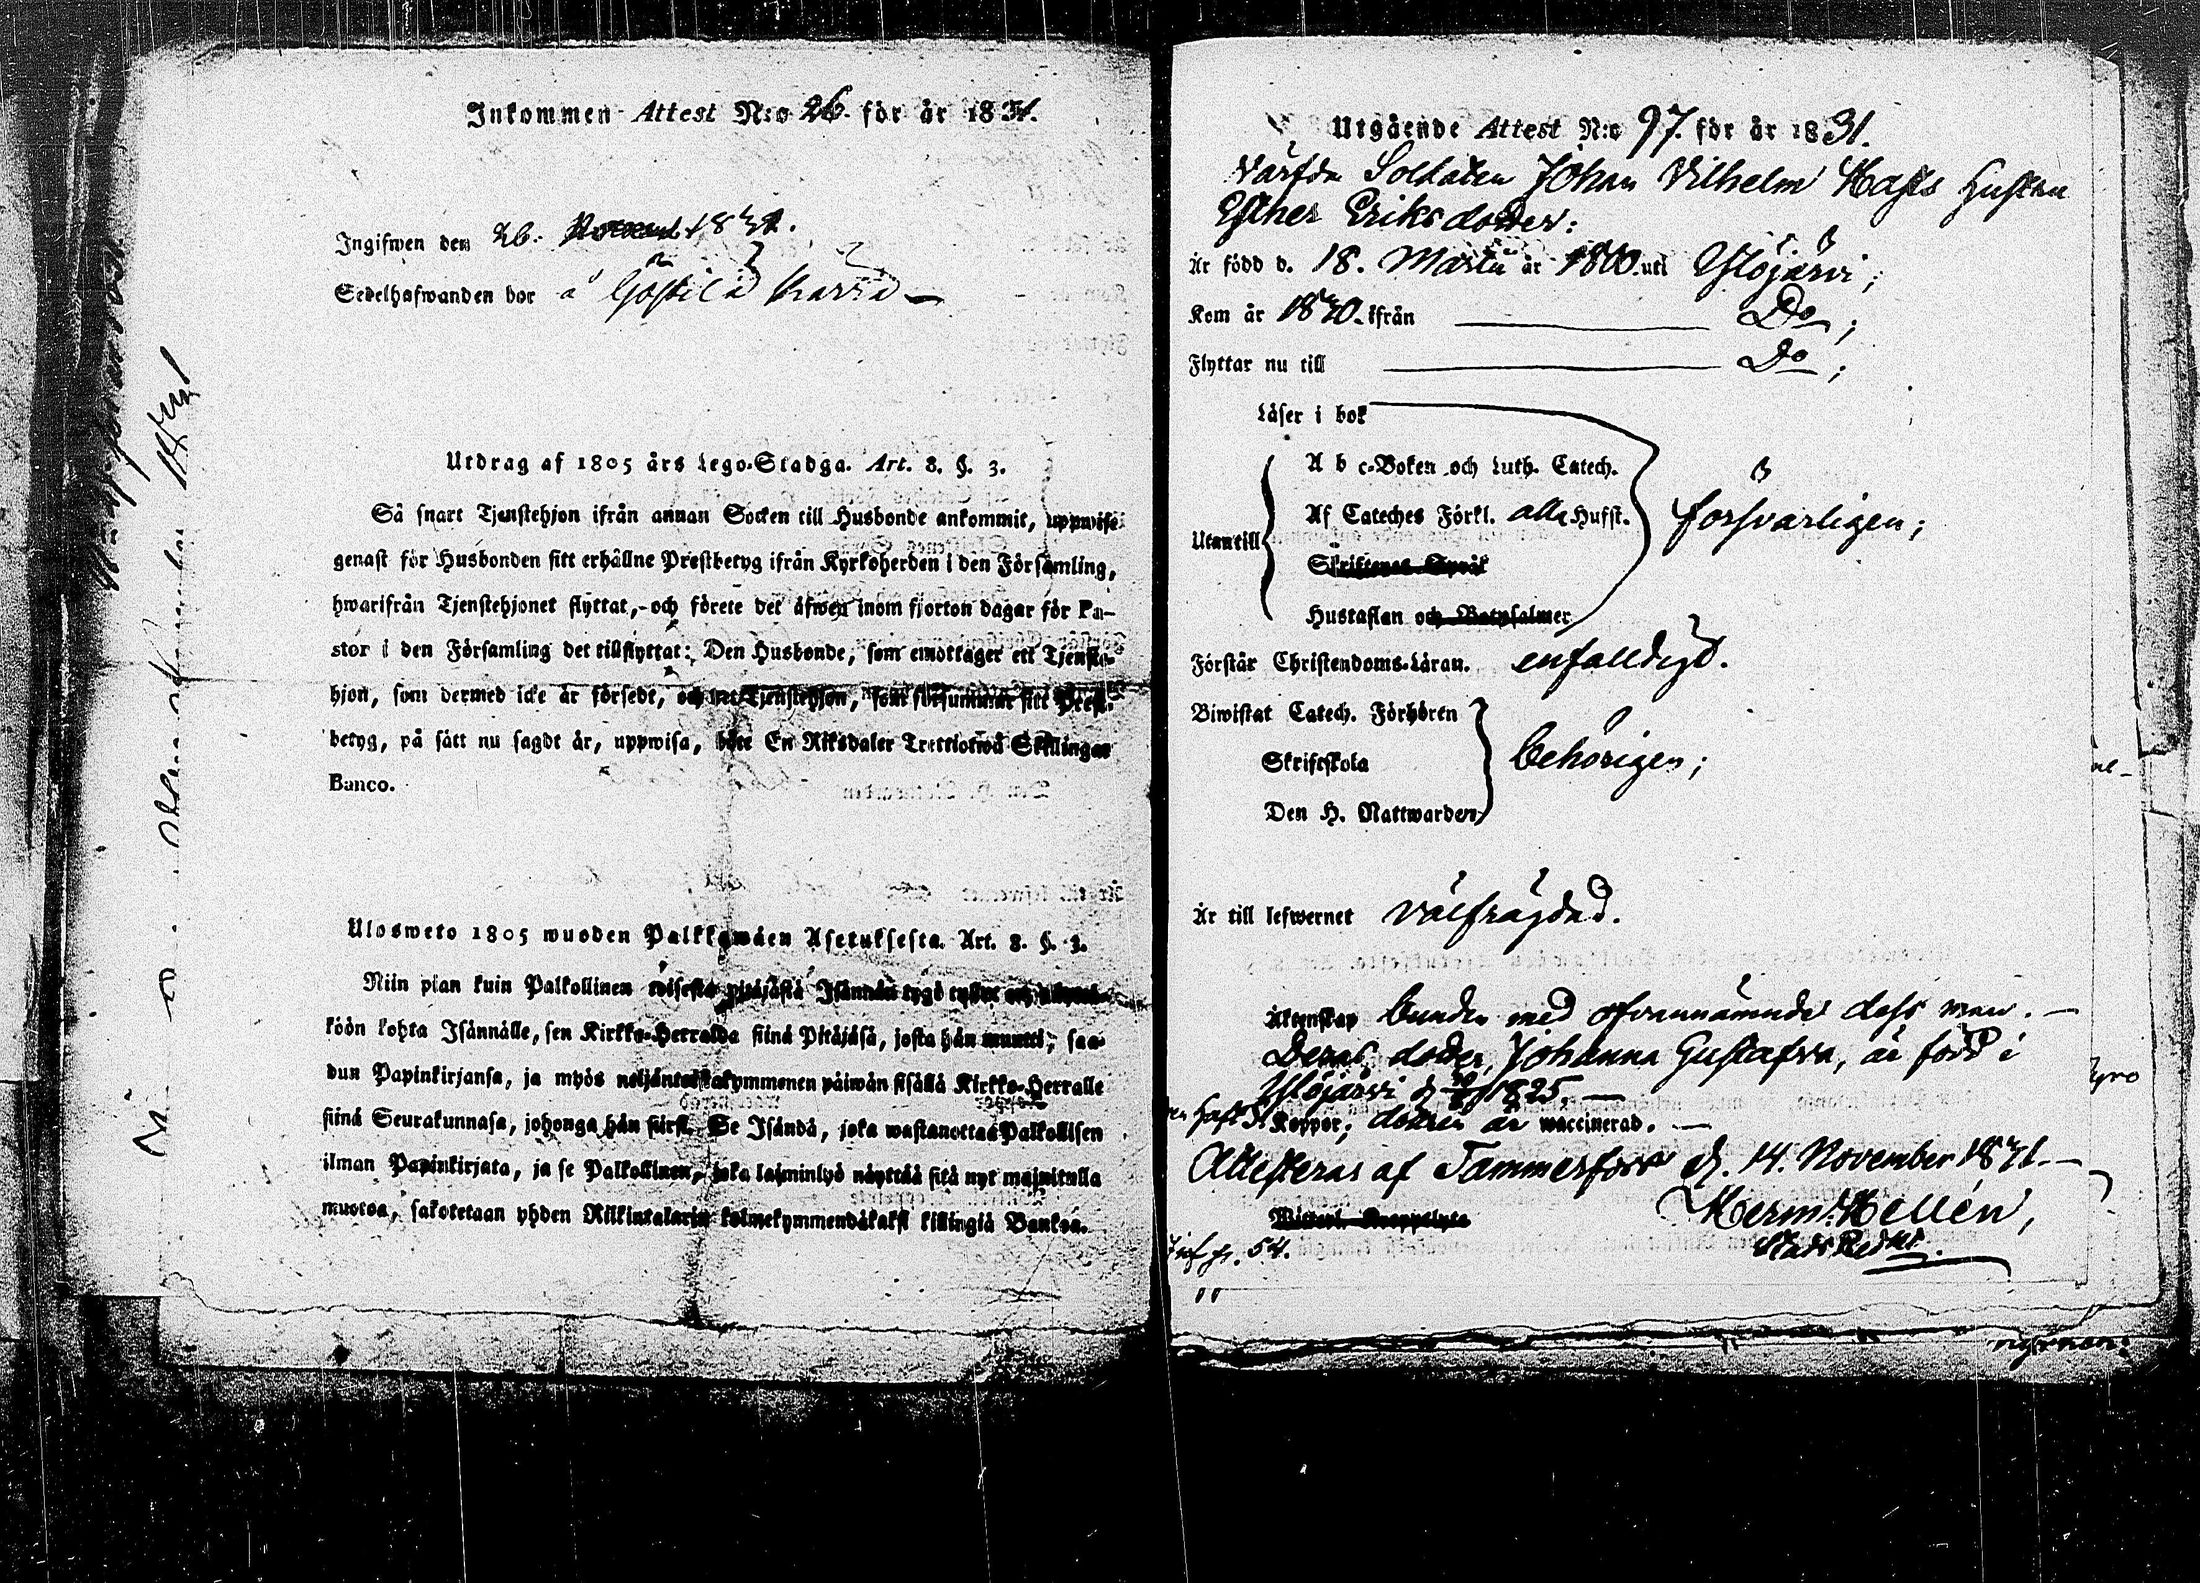 Inkommen Attest N:o 26. för år 1831.
Ingifwen den 26. Novemb. 1831.
Sedelhafwanden bor å
Utdrag af 1805 års Lego-Stadga. Art. 8. §. 3.
Så snart Tjenstehjon ifrån annan Socken till Husbonde ankommit, uppwise
genast för Husbonden sitt erhållne Prestbetyg ifrån Kyrkoherden i den Församling,
hwarifrån Tjenstehjonet flyttat, och förete det äfwen inom fjorton dagar för Pa-
stor i den Församling det tillflyttat: Den Husbonde, som emottager ett Tjenste-
hjon, som dermed icke är försedt, och det Tjenstehjon, som försummar sitt Prest-
betyg, på sätt nu sagdt är, uppwisa, böte En Riksdaler Trettiotwå Skillingar
Banco.
Ulosweto 1805 wuoden Palkkawäen Asetuksesta. Art. 8. §. 3.
Niin pian kuin Palkollinen toisesta pitäjästä Isännän tygö tullut on, näyttä-
köön kohta Isännälle, sen Kirkko-Herralda siinä Pitäjäsä, josta hän muutti, saa-
dun Papinkirjansa, ja myös neljäntoistakymmenen päiwän sisällä Kirkko-Herralle
siinä Seurakunnasa, johonga hän siirsi. Se Isändä, joka wastanottaa Palkollisen
ilman Papinkirjata, ja se Palkollinen, joka laiminlyö näyttää sitä nyt mainitulla
muotoa, sakotetaan yhden Riikintalarin kolmekymmendäkaksi killingiä Bankoa.
Utgående Attest N:o 97. för år 1831.
Värfda Soldaten Johan Vilhelm Hasts Hustru
Esther Eriksdotter:
Är född d. 18. Martii år 1800. uti Ylöjärvi;
Kom år 1830. ifrån Do;
Flyttar nu till Do;
Läser i bok
A b c-Boken och Luth. Catech.
Af Cateches Förkl. alla Hufst. försvarligen;
Utantill
Skriftenes Språk
Hustaflan och Botpsalmer
Förstår Christendoms-Läran. enfalldigt.
Biwistat Catech. Förhören
Skriftskola behörigen;
Den H. Nattwarden
Är till lefwernet välfrägdad.
Äktenskap bunden med ofvannämnde dess man.
Deras dotter, Johanna Gustafva, är född i
Ylöjärvi d. 1825.
Koppor; dottren är waccinerad.
Attesteras af Tammerfors d. 14. November 1831.
Herm. Hellén,
54.